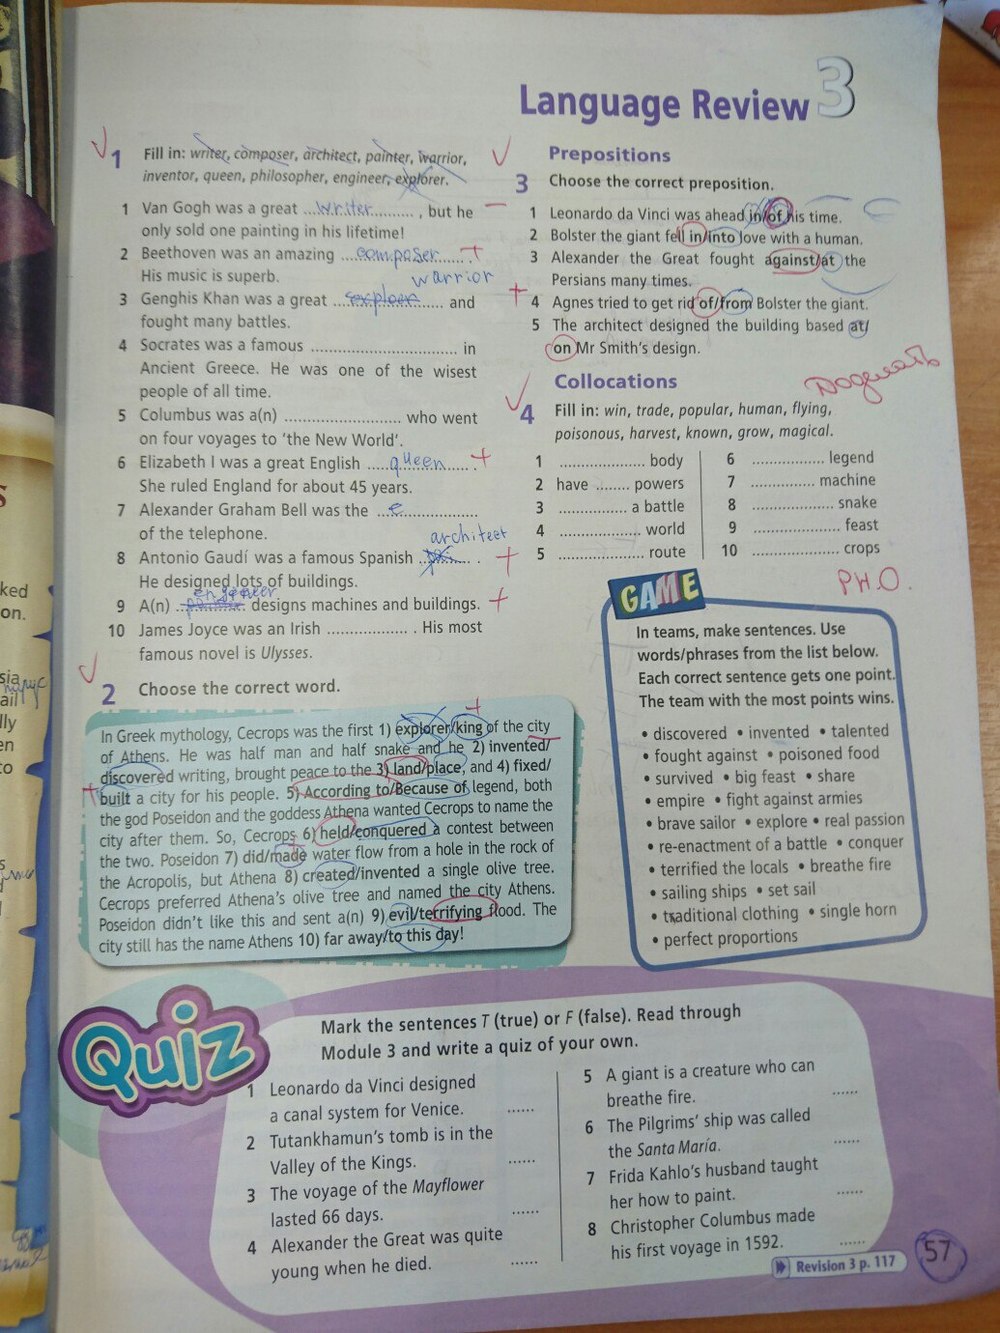 Language Review 3
1 Fill in: writer, composer, architect, painter, warrior,
inventor, queen, philosopher, engineer, explorer.
1 Van Gogh was a great ...writer............, but he
only sold one painting in his lifetime!
2 Beethoven was an amazing ...composer...... .
His music is superb.
warrior
3 Genghis Khan was a great .................... and
fought many battles.
4 Socrates was a famous ............................ in
Ancient Greece. He was one of the wisest
people of all time.
5 Columbus was a(n) ...................... who went
on four voyages to 'the New World'.
6 Elizabeth I was a great English ....queen...... .
She ruled England for about 45 years.
7 Alexander Graham Bell was the ...e..............
of the telephone.
architect
8 Antonio Gaudí was a famous Spanish ............ .
He designed lots of buildings.
9 A(n) ............ designs machines and buildings.
10 James Joyce was an Irish ................ . His most
famous novel is Ulysses.
2 Choose the correct word.
In Greek mythology, Cecrops was the first 1) explorer/king of the city
of Athens. He was half man and half snake and he 2) invented/
discovered writing, brought peace to the 3) land/place, and 4) fixed/
built a city for his people. 5) According to/Because of legend, both
the god Poseidon and the goddess Athena wanted Cecrops to name the
city after them. So, Cecrops 6) held/conquered a contest between
the two. Poseidon 7) did/made water flow from a hole in the rock of
the Acropolis, but Athena 8) created/invented a single olive tree.
Cecrops preferred Athena's olive tree and named the city Athens.
Poseidon didn't like this and sent a(n) 9) evil/terrifying flood. The
city still has the name Athens 10) far away/to this day!
Prepositions
3 Choose the correct preposition.
1 Leonardo da Vinci was ahead in/of his time.
2 Bolster the giant fell in/into love with a human.
3 Alexander the Great fought against/at the
Persians many times.
4 Agnes tried to get rid of/from Bolster the giant.
5 The architect designed the building based at/
on Mr Smith's design.
Collocations
4 Fill in: win, trade, popular, human, flying,
poisonous, harvest, known, grow, magical.
1 .................... body
2 have ........ powers
3 ................ a battle
4 ................... world
5 .................... route
6 ................. legend
7 ............... machine
8 ................... snake
9 .................... feast
10 .................... crops
GAME
In teams, make sentences. Use
words/phrases from the list below.
Each correct sentence gets one point.
The team with the most points wins.
• discovered • invented • talented
• fought against • poisoned food
• survived • big feast • share
• empire • fight against armies
• brave sailor • explore • real passion
• re-enactment of a battle • conquer
• terrified the locals • breathe fire
• sailing ships • set sail
• traditional clothing • single horn
• perfect proportions
Quiz
Mark the sentences T (true) or F (false). Read through
Module 3 and write a quiz of your own.
1 Leonardo da Vinci designed
a canal system for Venice. ......
2 Tutankhamun's tomb is in the
Valley of the Kings. ......
3 The voyage of the Mayflower
lasted 66 days. ......
4 Alexander the Great was quite
young when he died. ......
5 A giant is a creature who can
breathe fire. ......
6 The Pilgrims' ship was called
the Santa María. ......
7 Frida Kahlo's husband taught
her how to paint. ......
8 Christopher Columbus made
his first voyage in 1592. ......
Revision 3 p. 117
57